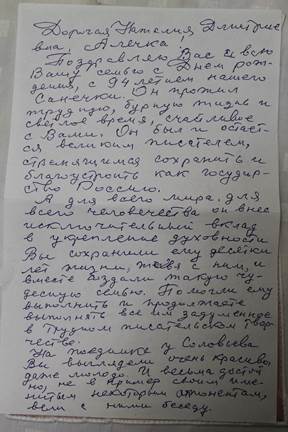 Дорогая Наталия Дмитрие
вна, Алечка!
Поздравляю Вас и всю
Вашу семью с Днем рож-
дения, с 94 летием нашего
Санечки. Он прожил
трудную, бурную жизнь и
светлое время, счастливое
с Вами. Он был и остает-
ся великим писателем,
стремящимся сохранить и
благоустроить как государ-
ство Россию.
А для всего мира, для
всего человечества он внес
исключительный вклад
в укрепление духовности
Вы сохранили ему десятки
лет жизни, живя с ним, и
вместе создали такую чу-
десную семью. Помогли ему
выполнить и продолжаете
выполнять все им задуманное
в трудном писательском твор-
честве.
На поединке у Соловьева
Вы выглядели очень красиво,
даже молодо. И весьма достой
но, не в пример своим име-
нитым некоторым оппонентам,
вели с ними беседу.